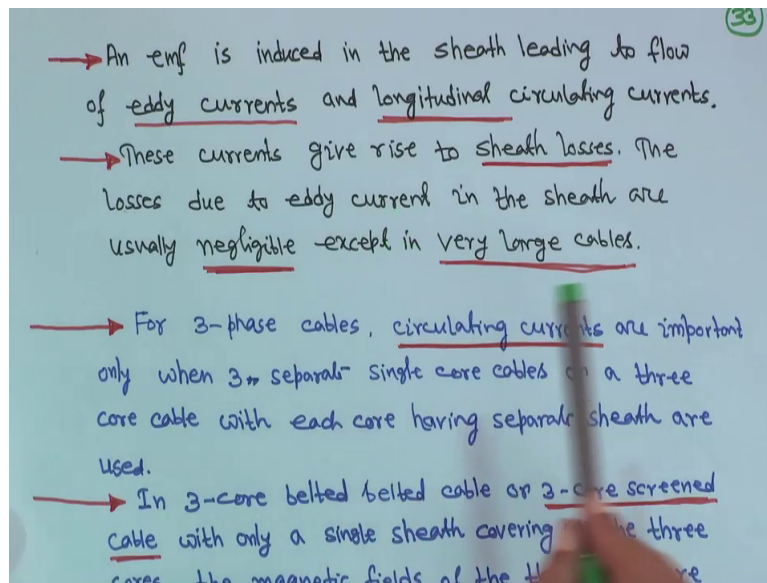 33
An emf is induced in the sheath leading to flow
of eddy currents and longitudinal circulating currents.
These currents give rise to sheath losses. The
losses due to eddy current in the sheath are
usually negligible except in very large cables.
For 3-phase cables, circulating currents are important
only when 3 separate single core cables a three
core cable with each core having separate sheath are
used.
In 3-core belted belted cable or 3-core screened
cable with only a single sheath covering the three
cores, the magnetic fields of the